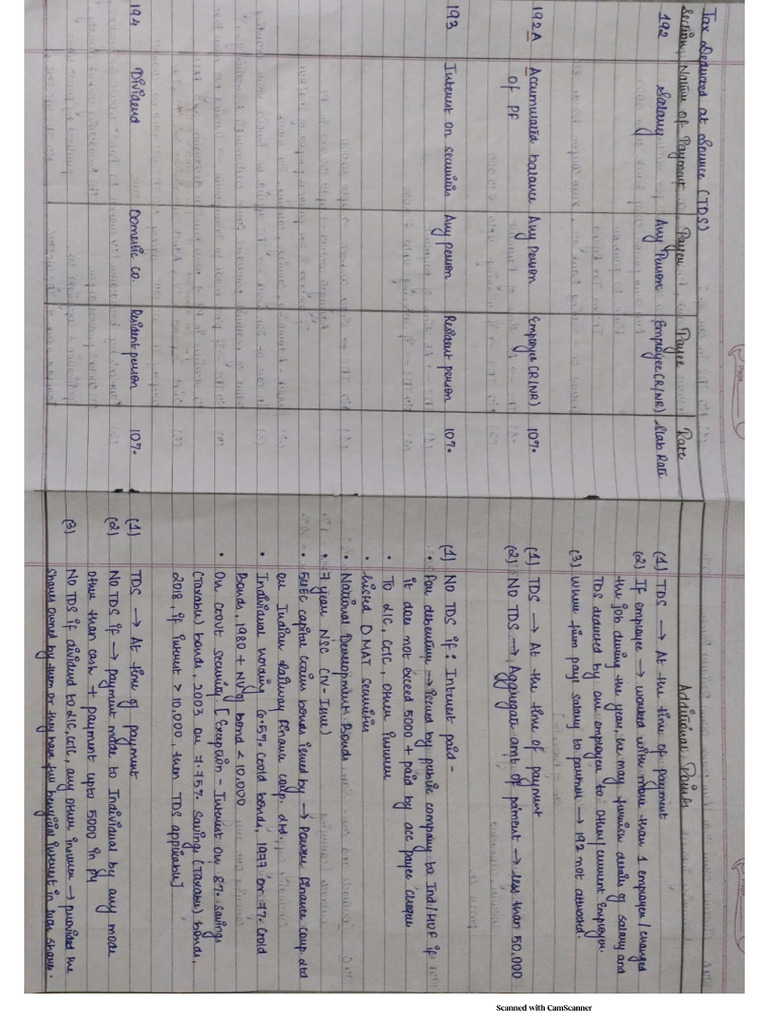 Tax Deducted at Source (TDS)
Section Nature of Payment Payer Payee Rate Additional Points
192 Salary Any Person Employee (R/NR) Slab Rate (1) TDS → At the time of payment
(2) If employee → worked with more than 1 employer / changed
the job during the year, he may furnish details of salary and
TDS deducted by one employer to other/current Employer.
(3) Where firm pays salary to partner → 192 not attracted.
192A Accumulated balance Any Person Employee (R/NR) 10% (1) TDS → At the time of payment
of PF (2) NO TDS → Aggregate amt of p'ment → less than 50,000
193 Interest on securities Any person Resident person 10% (1) NO TDS if: Interest paid -
• For debenture → issued by public company to Ind/HUF if
it does not exceed 5000 + paid by acc payee cheque
• To LIC, GIC, Other insurer
• Listed DMAT securities
• National Development Bonds
• 7 year NSC (IV-Issue)
• 54EC capital Gains bonds issued by → Power Finance Corp. Ltd
or Indian Railway Finance Corp. Ltd.
• Individual holding 6.5% Gold bonds, 1977 or 7% Gold
Bonds, 1980 + NV of bond < 10,000
• On Govt security [Exception - Interest on 8% savings
(Taxable) bonds, 2003 or 7.75% Savings (Taxable) bonds,
2018, if interest > 10,000, then TDS applicable]
194 Dividend Domestic co. Resident person 10% (1) TDS → At time of payment
(2) No TDS if → payment made to Individual by any mode
other than cash + payment upto 5000 in py
(3) No TDS if dividend to LIC, GIC, any other insurer → provided the
shares owned by them or they have full beneficial interest in such shares.
Scanned with CamScanner